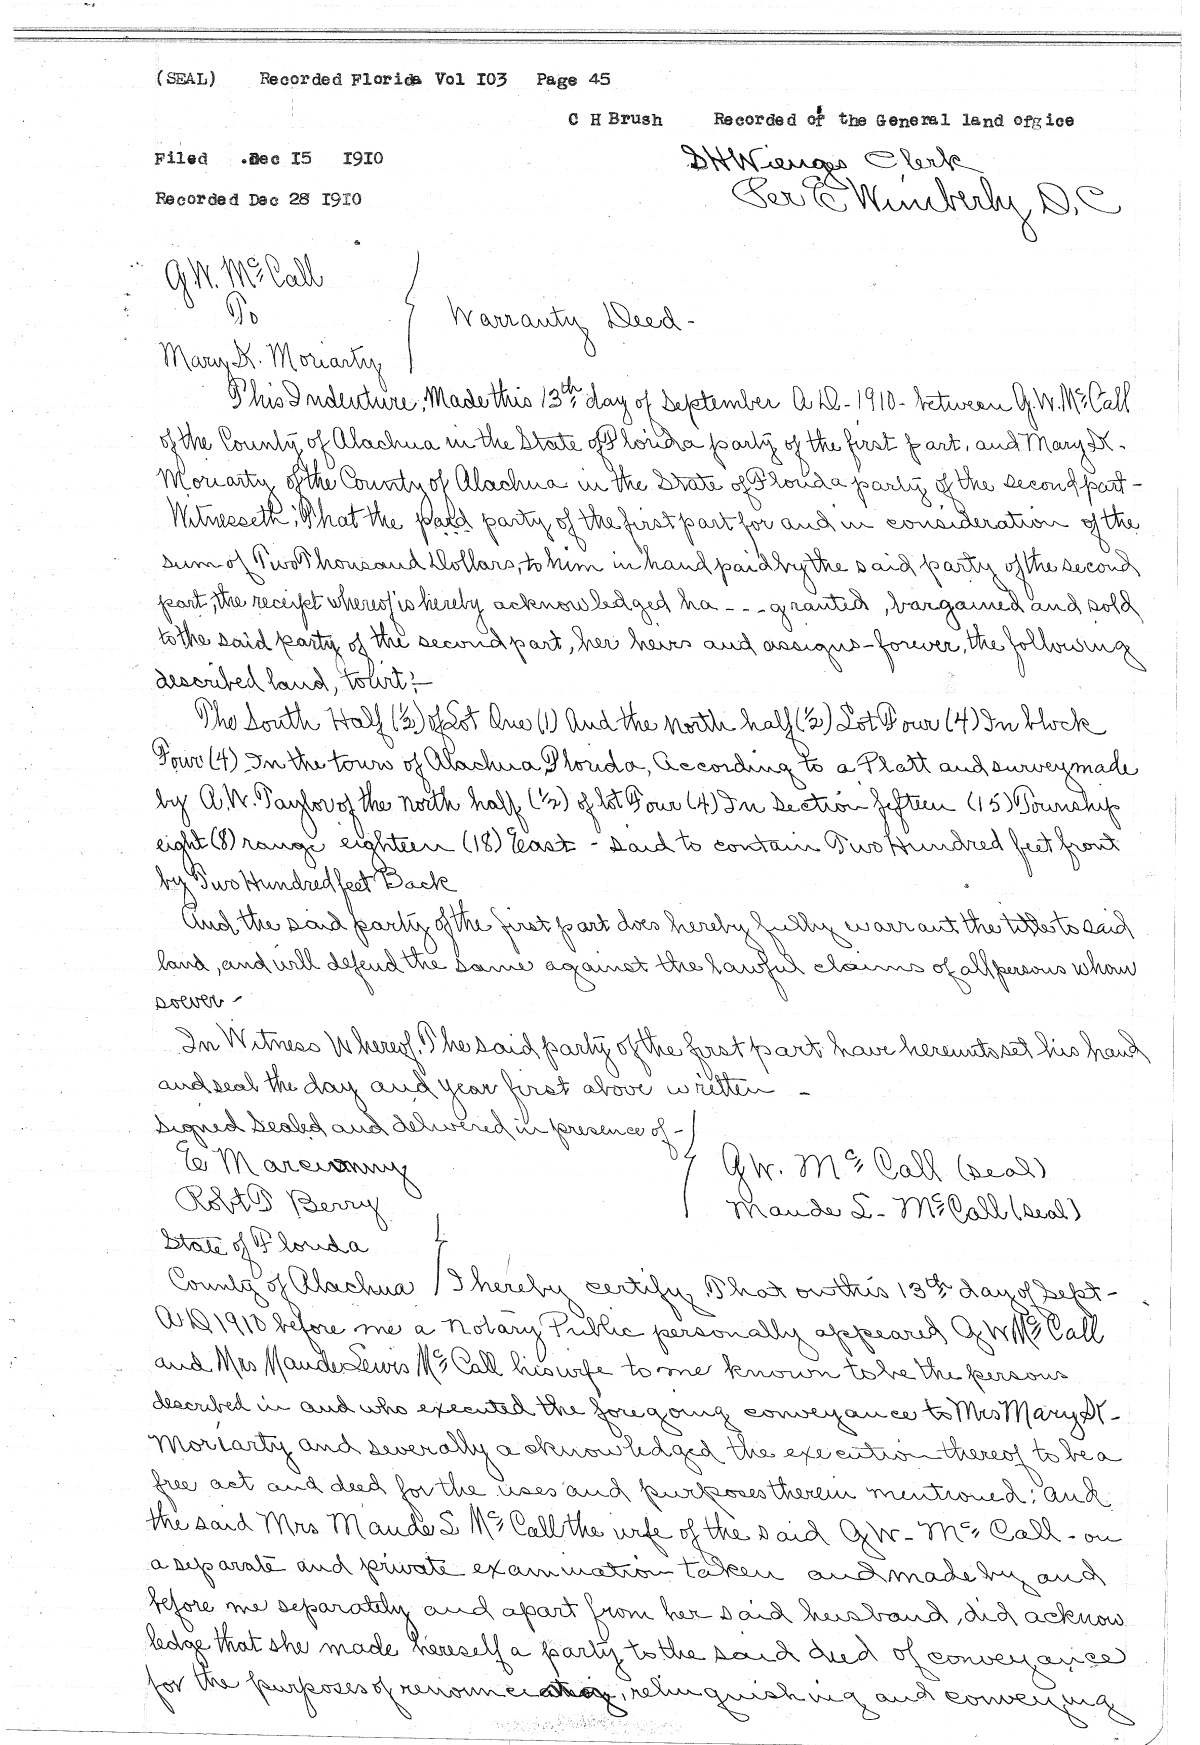 (SEAL) Recorded Florida Vol I03 Page 45
C H Brush Recorded of the General land ofgice
Filed .Dec I5 I9I0
S H Wienges Clerk
Recorded Dec 28 I9I0
Per E Wimberly D.C
G.W. McCall
To
Warranty Deed -
Mary K. Moriarty
This Indenture, Made this 13th day of September A.D. 1910 - between G.W. McCall
of the County of Alachua in the State of Florida party of the first part, and Mary K.
Moriarty of the County of Alachua in the State of Florida party of the second part -
Witnesseth; That the said party of the first part for and in consideration of the
sum of Two Thousand Dollars, to him in hand paid by the said party of the second
part, the receipt whereof is hereby acknowledged ha - - - granted, bargained and sold
to the said party of the second part, her heirs and assigns - forever, the following
described land, towit: -
The South Half (1/2) of Lot One (1) And the north half (1/2) Lot Four (4) In block
Four (4) In the town of Alachua Florida, According to a Platt and survey made
by A.W. Taylor of the north half (1/2) of lot Four (4) In section fifteen (15) Township
eight (8) range eighteen (18) East - said to contain Two Hundred feet front
by Two Hundred feet Back
And the said party of the first part does hereby fully warrant the title to said
land, and will defend the same against the lawful claims of all persons whom
soever -
In Witness Whereof. The said party of the first part have hereunto set his hand
and seal the day and year first above written -
Signed Sealed and delivered in presence of -
G.W. McCall (seal)
Robt P Berry
Maude L. McCall (seal)
State of Florida
County of Alachua I hereby certify That on this 13th day of Sept -
A.D 1910 before me a Notary Public personally appeared G W McCall
and Mrs Maude Lewis McCall his wife to me known to be the persons
described in and who executed the foregoing conveyance to Mrs Mary K -
Moriarty and severally acknowledged the execution thereof to be a
free act and deed for the uses and purposes therein mentioned; and
the said Mrs Maude L McCall the wife of the said G W - McCall - on
a separate and private examination taken and made by and
before me separately and apart from her said husband, did acknow
ledge that she made herself a party to the said deed of conveyance
for the purposes of renouncing, relinquishing and conveying